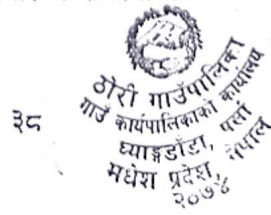 ३८
ठोरी गाउँपालिका
गाउँ कार्यपालिकाको कार्यालय
घ्याङ्गडाँडा, पर्सा
मधेश प्रदेश, नेपाल
२०७४